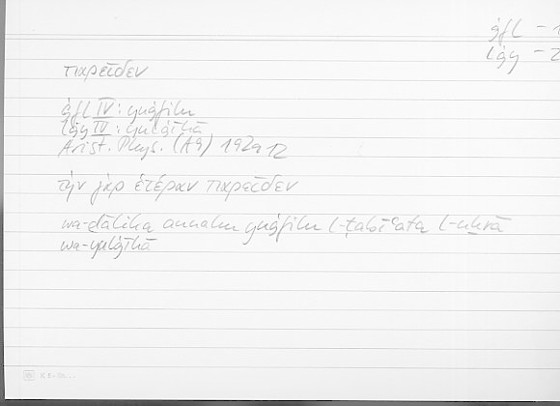 ġfl - 1
lġy - 2
παρεῖδεν
ġfl IV: yuġfilu
lġy IV: yulġīhā
Arist. Phys. (A9) 192a12
τὴν γὰρ ἑτέραν παρεῖδεν
wa-ḏālika annahu yuġfilu l-ṭabīʿata l-uḫrā
wa-yulġīhā